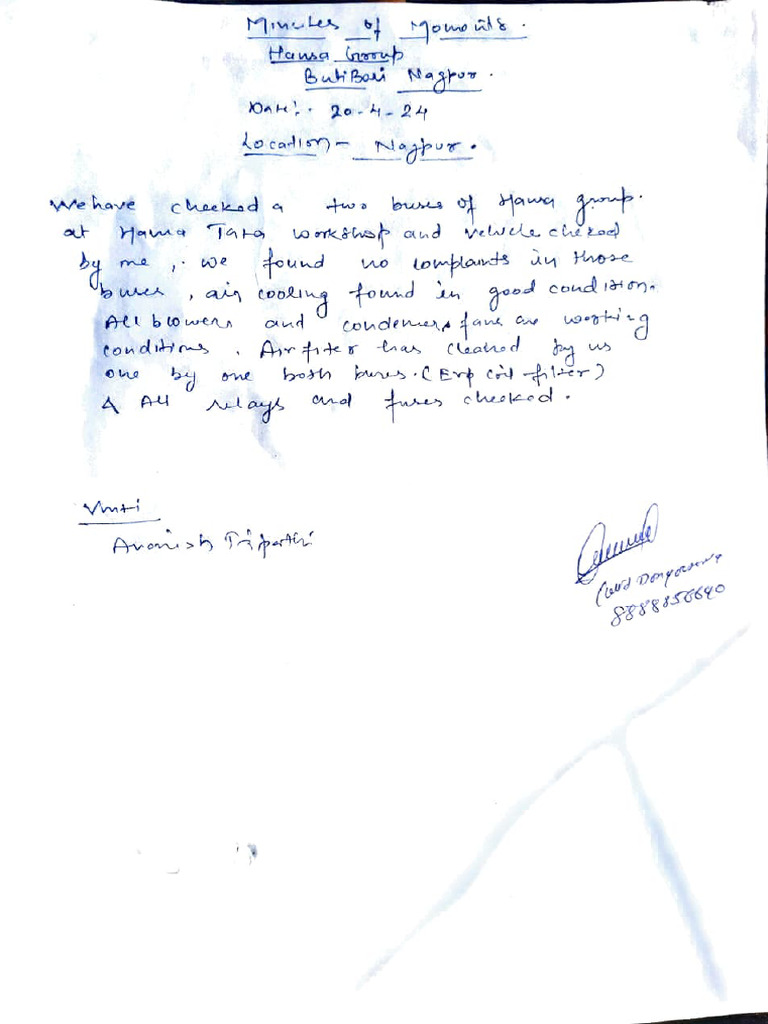 Minutes of Moments.
Hansa Group
ButiBori Nagpur.
Date:. 20-4-24
Location - Nagpur.
We have checked a two buses of Hansa group.
at Hansa Tara workshop and vehicle checked
by me, we found no complaints in those
buses, air cooling found in good condition.
All blowers and condensers fans are working
conditions. Air fiter has cleaned by us
one by one both buses. (Evp coil filter)
& All relays and fuses checked.
Avanish Tripathi
8888856640